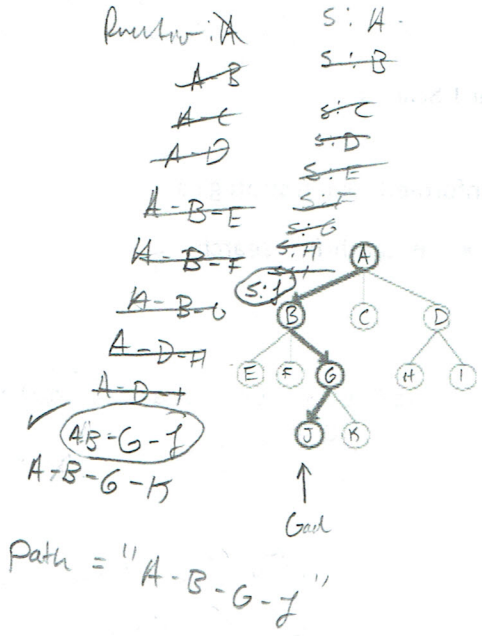 : A
A-B
A-C
A-D
A-B-E
A-B-F
A-B-G
A-D-H
A-D-I
AB-G-J
A-B-G-K
S: A
S: B
S: C
S: D
S: E
S: F
S: G
S: H
S: I
S: J
A
B C D
E F G H I
J K
Goal
Path = "A-B-G-J"